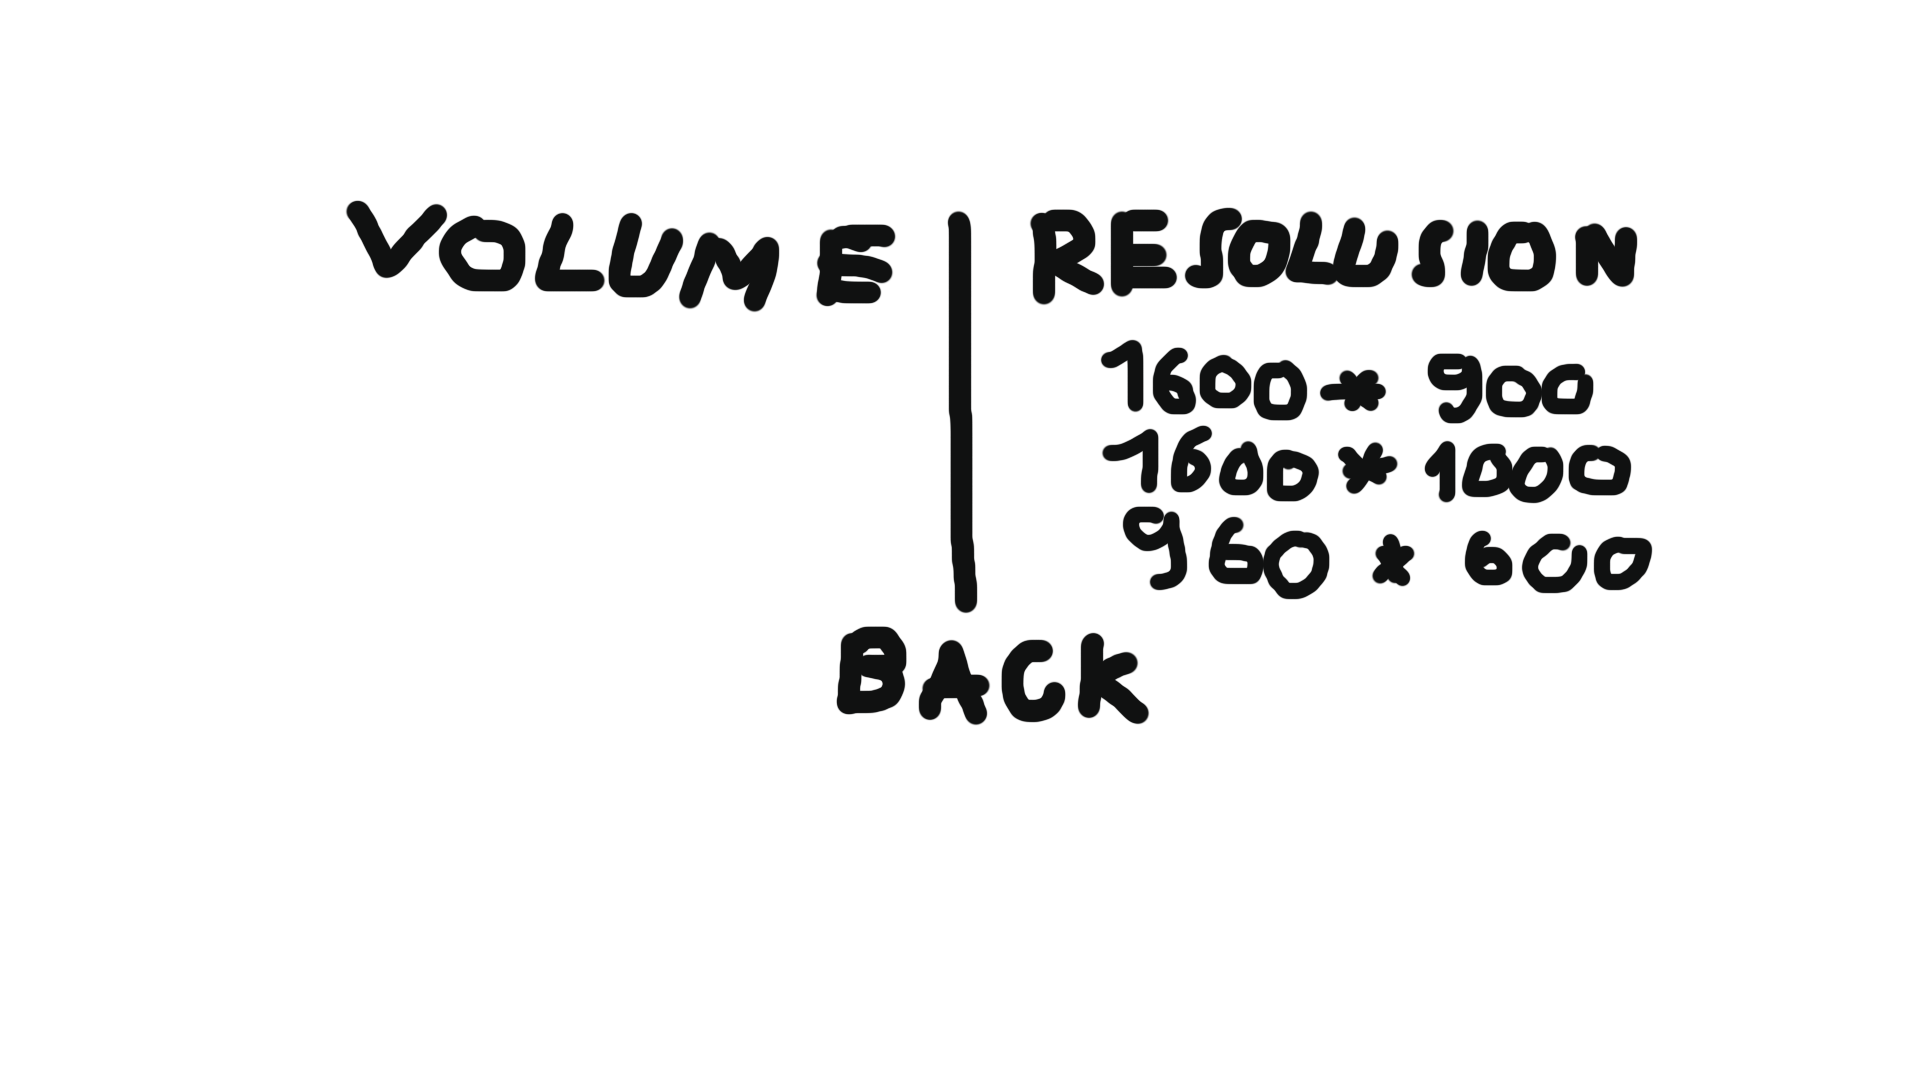 VOLUME | RESOLUSION
1600 * 900
1600 * 1000
960 * 600
BACK